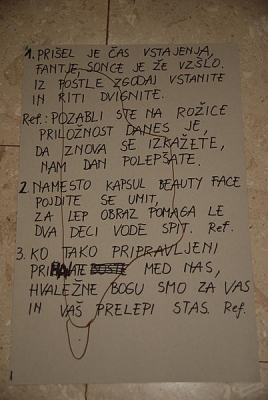 1. PRIŠEL JE ČAS VSTAJENJA,
FANTJE, SONCE JE ŽE VZŠLO.
IZ POSTLE ZGODAJ VSTANITE
IN RITI DVIGNITE.
Ref.: POZABLI STE NA ROŽICE
PRILOŽNOST DANES JE,
DA ZNOVA SE IZKAŽETE,
NAM DAN POLEPŠATE.
2. NAMESTO KAPSUL BEAUTY FACE
POJDITE SE UMIT,
ZA LEP OBRAZ POMAGA LE
DVA DECI VODE SPIT. Ref.
3. KO TAKO PRIPRAVLJENI
MED NAS,
HVALEŽNE BOGU SMO ZA VAS
IN VAŠ PRELEPI STAS. Ref.